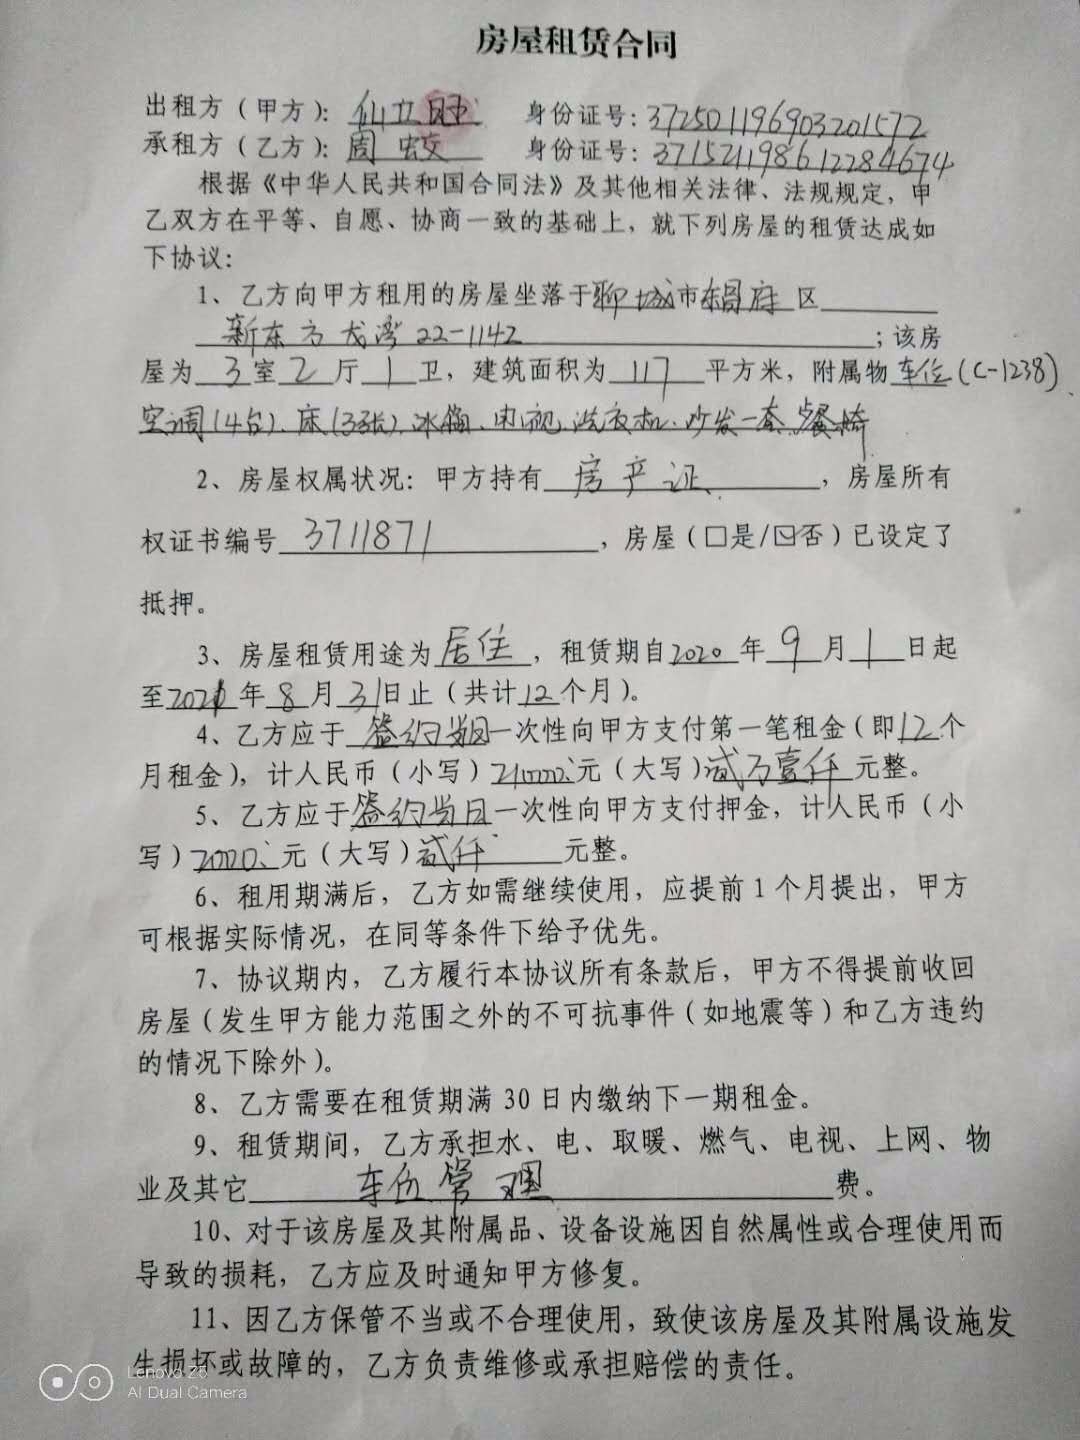 房屋租赁合同
出租方（甲方）： 身份证号：372501196903201572
承租方（乙方）：周蛟 身份证号：371521198612284674
根据《中华人民共和国合同法》及其他相关法律、法规规定，甲
乙双方在平等、自愿、协商一致的基础上，就下列房屋的租赁达成如
下协议：
1、乙方向甲方租用的房屋坐落于聊城市东昌府区
新东方龙湾 22-1142；该房
屋为3室2厅1卫，建筑面积为117平方米，附属物车位(C-1238)
空调(4台)、床(3张)、冰箱、电视、洗衣机、沙发一套、餐椅
2、房屋权属状况：甲方持有房产证，房屋所有
权证书编号3711871，房屋（□是/☑否）已设定了
抵押。
3、房屋租赁用途为居住，租赁期自2020年9月1日起
至2021年8月31日止（共计12个月）。
4、乙方应于签约当日一次性向甲方支付第一笔租金（即12个
月租金），计人民币（小写）21000元（大写）贰万壹仟元整。
5、乙方应于签约当日一次性向甲方支付押金，计人民币（小
写）2000元（大写）贰仟元整。
6、租用期满后，乙方如需继续使用，应提前1个月提出，甲方
可根据实际情况，在同等条件下给予优先。
7、协议期内，乙方履行本协议所有条款后，甲方不得提前收回
房屋（发生甲方能力范围之外的不可抗事件（如地震等）和乙方违约
的情况下除外）。
8、乙方需要在租赁期满30日内缴纳下一期租金。
9、租赁期间，乙方承担水、电、取暖、燃气、电视、上网、物
业及其它车位管理费。
10、对于该房屋及其附属品、设备设施因自然属性或合理使用而
导致的损耗，乙方应及时通知甲方修复。
11、因乙方保管不当或不合理使用，致使该房屋及其附属设施发
生损坏或故障的，乙方负责维修或承担赔偿的责任。
Lenovo Z5
AI Dual Camera